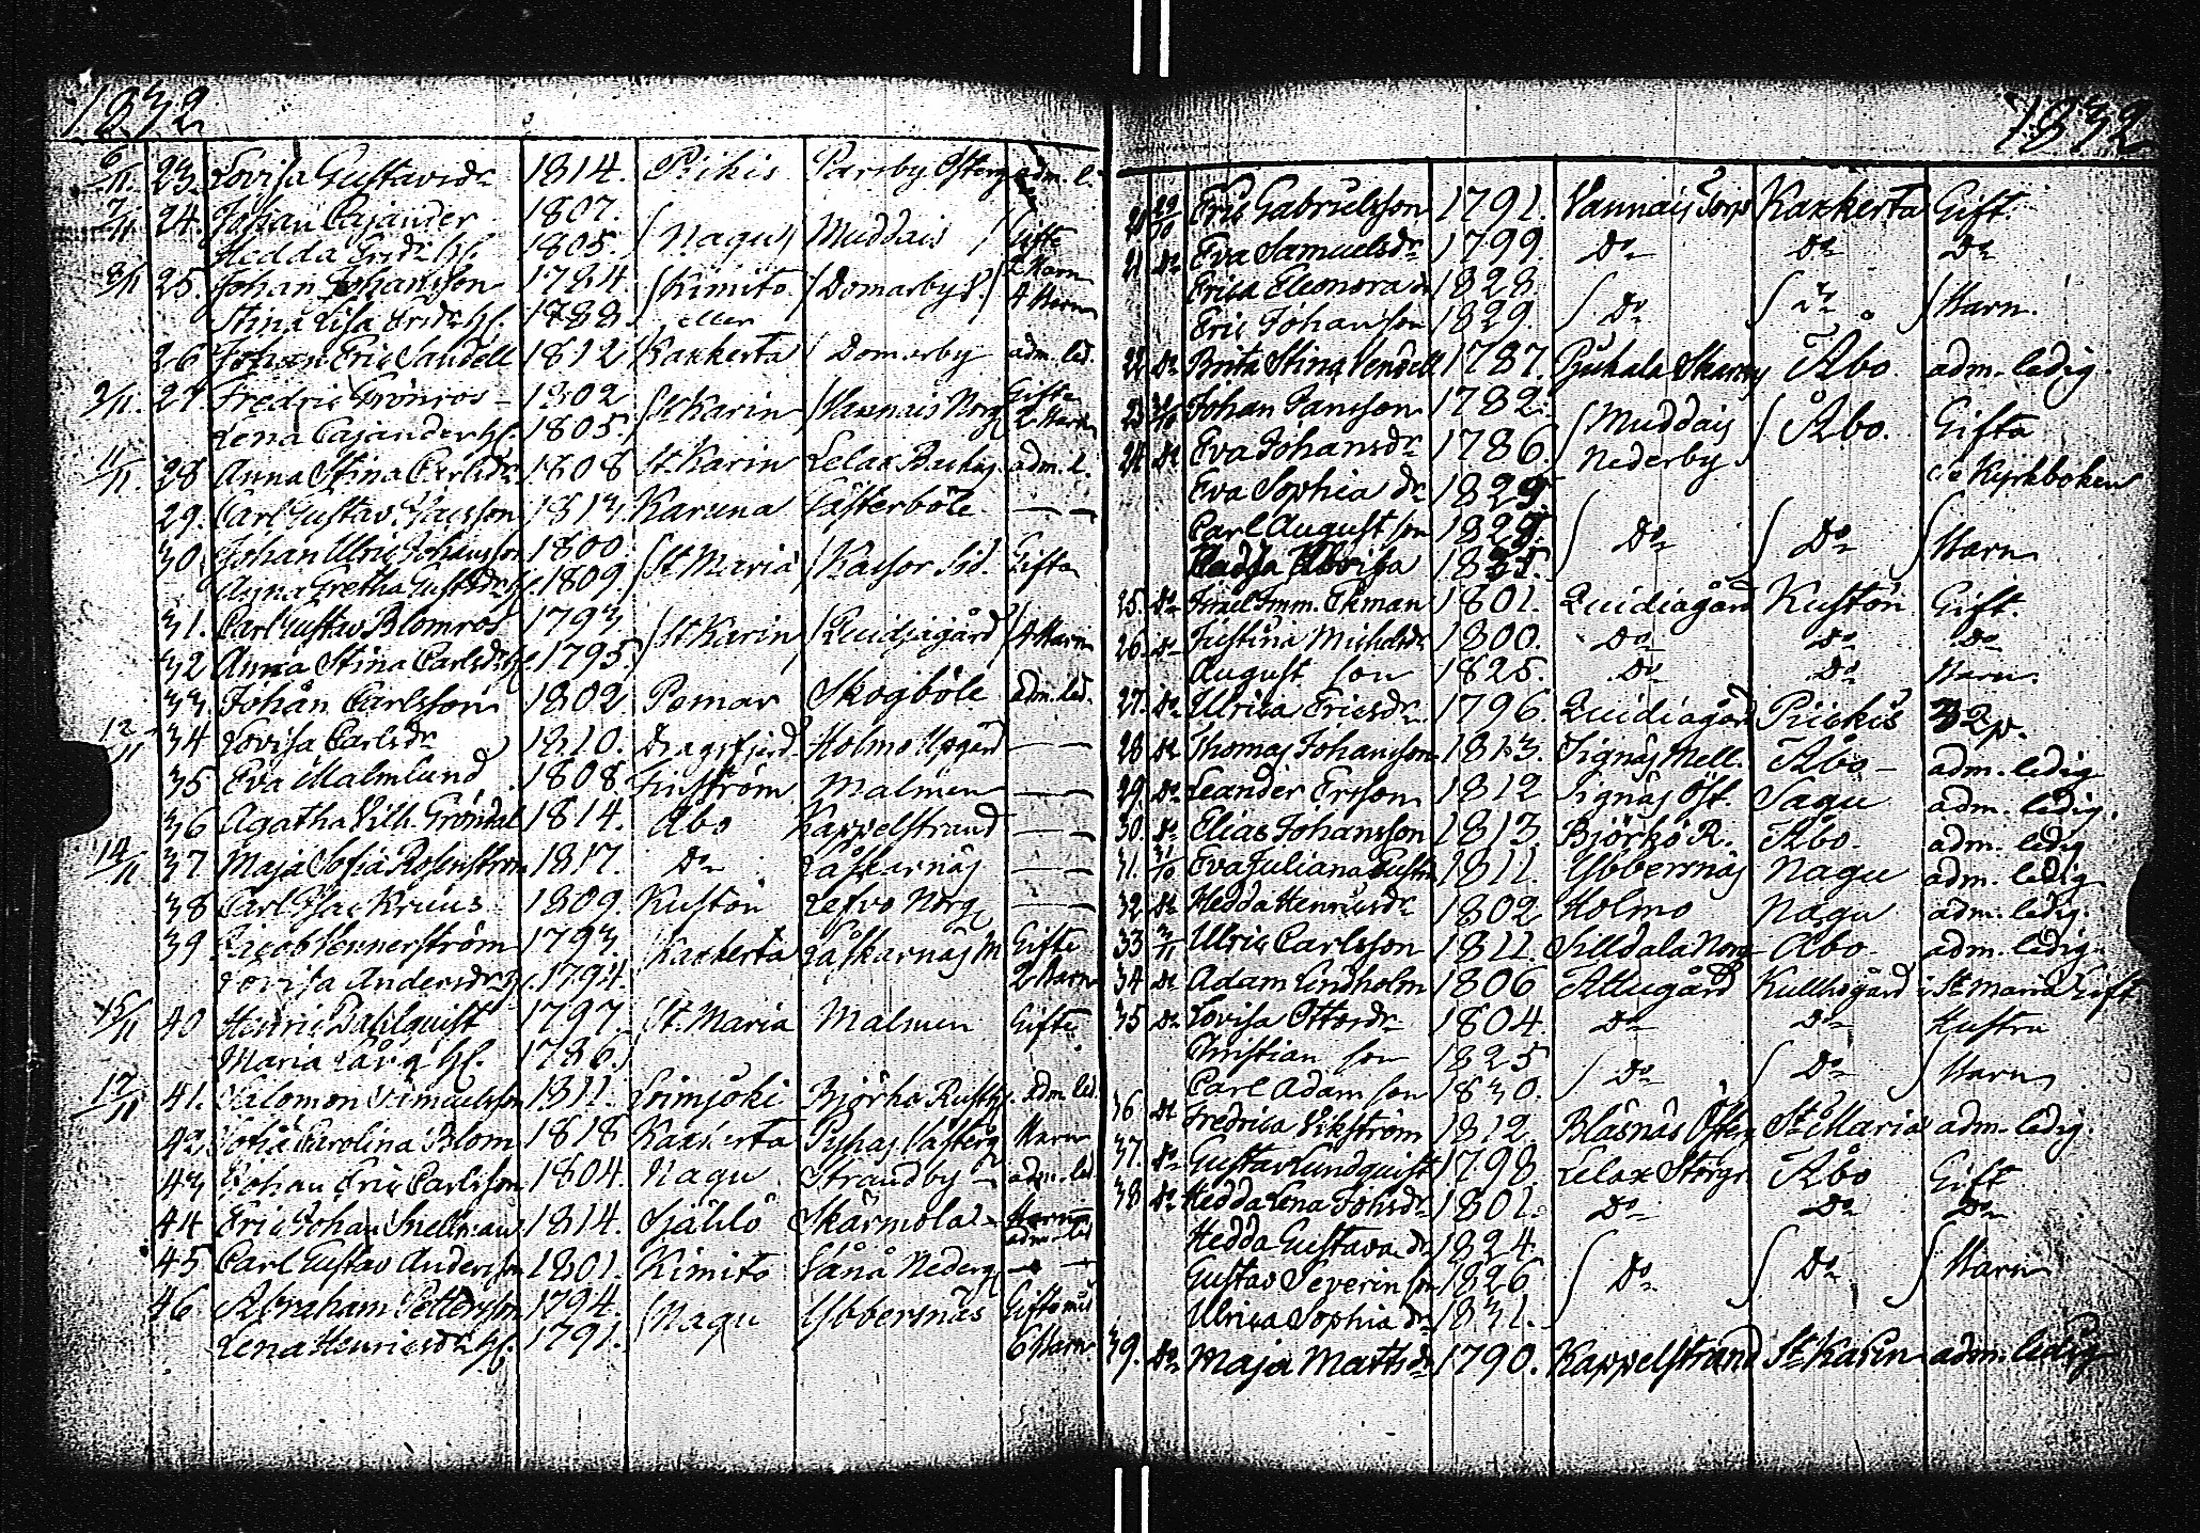 1832
6/11 23. Lovisa Gustavsdr 1814. Pikis Parsby Österg adm. l.
7/11 24. Johan Cajander 1807. Nagu Muddais Gifte
Hedda Ersdr hf. 1805. 2 Barn
8/11 25. Johan Johansson 1784. Kimito Domarby 4 Barn
Stina Lisa Ersdr hf. 1788. eller
26 Johan Eric Sandell 1812 Kakkerta Domarby adm. led.
9/11. 27. Fredric Grönros 1802 St Karin Vannais Norg Gifte
Lena Cajander hf. 1805. 2 Barn
11/11. 28 Anna Stina Carlsdr 1808 St. Karin Lelax adm. l.
29. Carl Gustav 1813 Karuna Fästerböle
30. Johan Ulric Johansson 1800. St. Maria Gifta
Anna Gretha hf. 1809.
31. Carl Gustav Blomros 1793 St Karin Quidjagård 4 Barn
32 Anna Stina Carlsdr hf. 1795.
33. Johan Carlsson 1802 Pemar Skogböle adm. led.
12/11 34 Lovisa Carlsdr 1810. Dragsfjerd Holmo Uppgård
35 Eva Malmlund 1808. Finström Malmen
36 Agatha Vilh. Gröndal 1814. Åbo Kappelstrand
14/11 37 Maja Sofia Rosenström 1817. Do Låskarnäs
38 Carl Isac Kruus 1809. Kustön Lefvo Norg
39 Jacob Vennerström 1793. Kakkerta Låskarnäs M Gifte
Lovisa Andersdr hf. 1794. 2 Barn
15/11 40 Henric Dahlquist 1797. St. Maria Malmen Gifte
Maria Lång hf. 1786.
17/11 41. Salomon Samuelsson 1811. Loimjoki Björko Rusth. adm led.
42. Carolina Blom 1818 Kakkerta Pyhas Västerg Barn
43 Johan Eric Carlsson 1804. Nagu Strandby adm. led.
44 Eric Johan Snellman 1814. Själö Skärmola Barn adm. led
45 Carl Gustav Andersson 1801. Kimito Sånå Nederg
46 Abraham Pettersson 1794. Nagu Ybbersnäs Gifte
Lena Henricsdr hf. 1791. 6 Barn
1832
20 29/10 Eric Gabrielsson 1791. Vannais Torp Kakkerta Gift.
21 Do Eva Samuelsdr 1799. Do Do Do
Erica Eleonora dr 1828
Eric Johan son 1829. Do Do Barn.
22 Do Brita Stina Vendell 1787. Pjukala Åbo. adm. ledig.
23 Johan Jansson 1782. Muddais Åbo. Gifta
24 Do Eva Johansdr 1786. Nederby Kyrkboken
Eva Sophia dr 1823.
Carl August son 1829. Do Do Barn
Lovisa
25. Do Israel Imm. Ekman 1801. Quidiagård Kustön Gift.
26. Do Justina Michelsdr 1800. Do Do Do
August son 1825. Do Do Barn.
27. Do Ulrica Ericsdr 1796. Quidiagård Piickis 32 p.
28 Do Thomas Johansson 1813. Signäs Mell. Åbo adm. ledig
29. Do Leander Ersson 1812 Signäs Öst. Sagu adm. ledig.
30. Do Elias Johansson 1813. Björkö R. Åbo. adm. ledig
31. 31/10 Eva Juliana 1811. Ybbersnäs Nagu adm. ledig
32 Do Hedda Henricsdr 1802 Holmo Nagu adm. ledig.
33 Ulric Carlsson 1811. Silldala Norg Åbo. adm. ledig
34 Do Adam Lindholm 1806 Attugård Kullhogård i St Maria Gift
35 Do Lovisa Ottosdr 1804. Do Do Hustru
Christian son 1825
Carl Adam son 1830. Do Do Barn
36 Do Fredrica Vikström 1812. Blåsnäs Österg St Maria adm. ledig.
37. Do Gustav Lundquist 1798 Lelax Storg Åbo Gift
38 Do Hedda Lena Johsdr 1801. Do Do Do
Hedda Gustava dr 1824.
Gustav Severin son 1826 Do Do Barn
Ulrica Sophia dr 1831.
39. Do Maja Mattsdr 1790. Kappelstrand St Karin adm. ledig